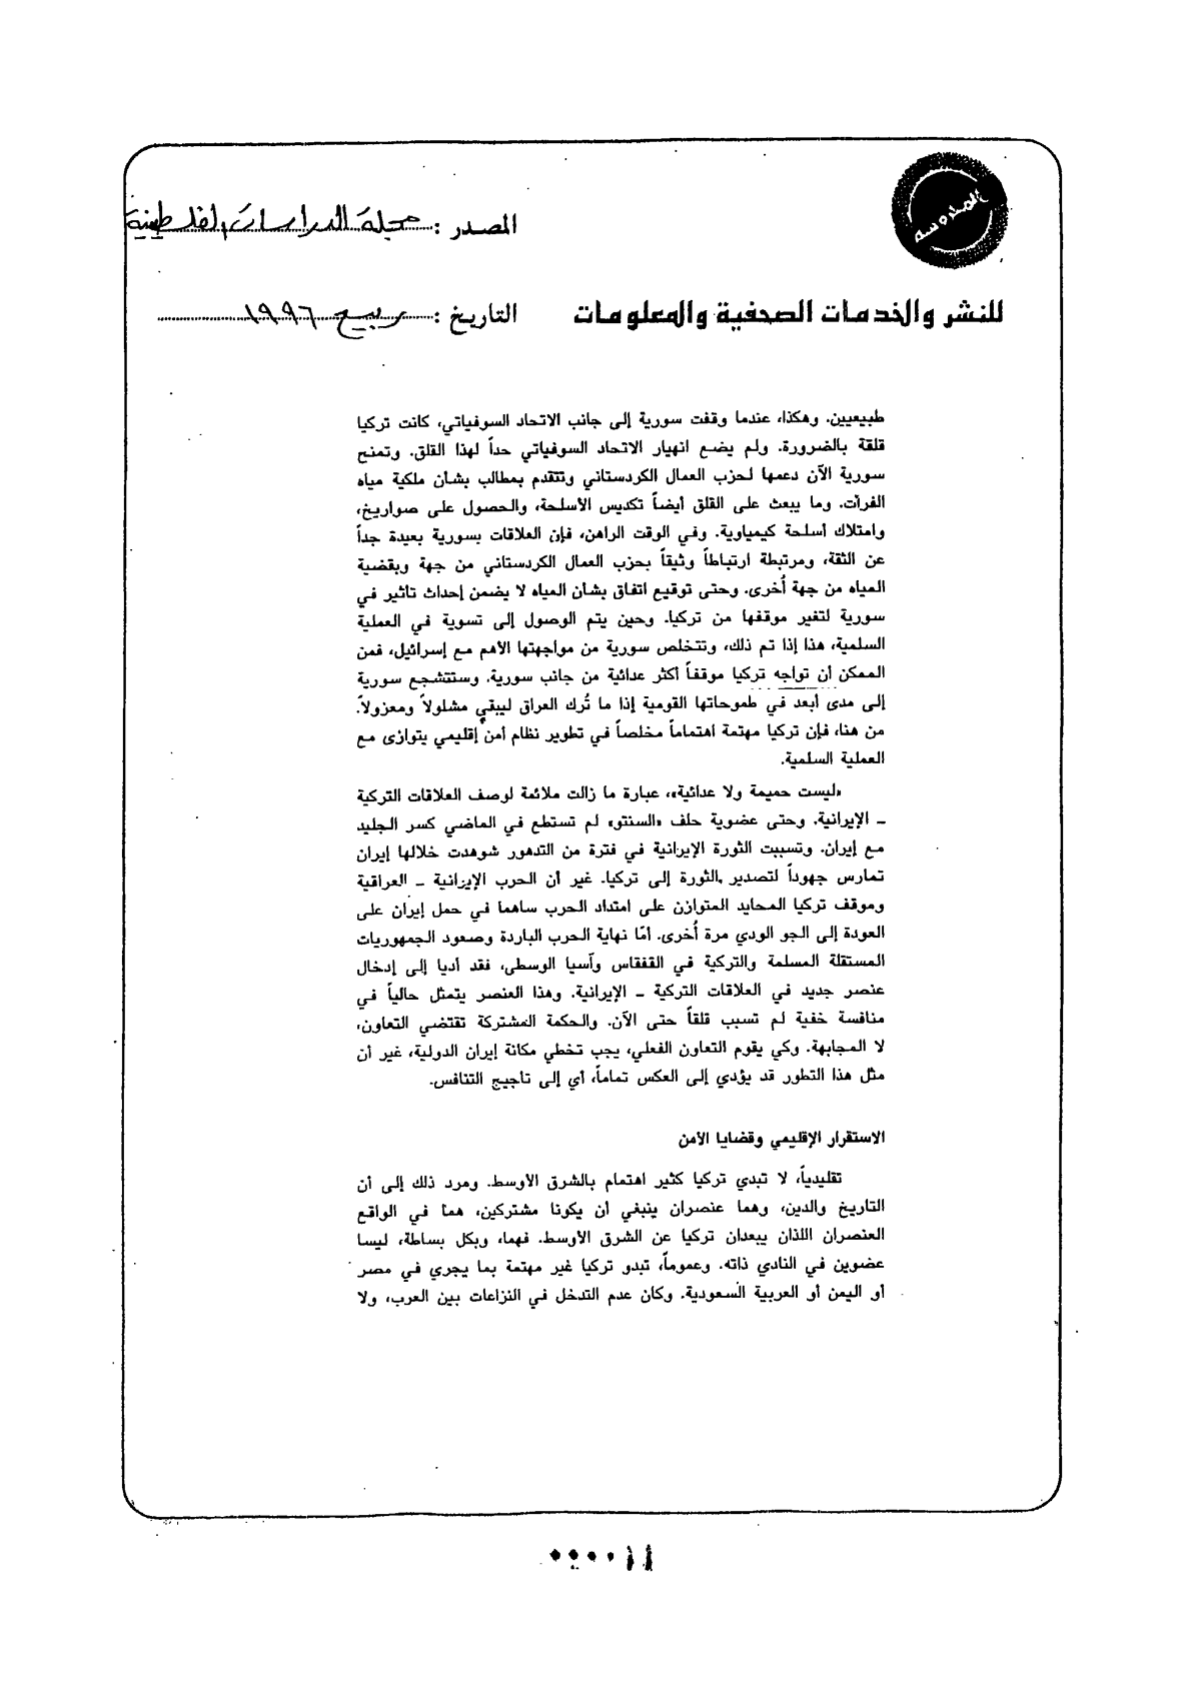 المصدر : مجلة الدراسات الفلسطينية
للنشر والخدمات الصحفية والمعلومات
التاريخ : ربيع ١٩٩٦
طبيعيين. وهكذا، عندما وقفت سورية إلى جانب الاتحاد السوفياتي، كانت تركيا
قلقة بالضرورة. ولم يضع انهيار الاتحاد السوفياتي حداً لهذا القلق. وتمنح
سورية الآن دعمها لحزب العمال الكردستاني وتتقدم بمطالب بشأن ملكية مياه
الفرات. وما يبعث على القلق أيضاً تكديس الأسلحة، والحصول على صواريخ،
وامتلاك أسلحة كيمياوية. وفي الوقت الراهن، فإن العلاقات بسورية بعيدة جداً
عن الثقة، ومرتبطة ارتباطاً وثيقاً بحزب العمال الكردستاني من جهة وبقضية
المياه من جهة أُخرى. وحتى توقيع اتفاق بشأن المياه لا يضمن إحداث تأثير في
سورية لتغير موقفها من تركيا. وحين يتم الوصول إلى تسوية في العملية
السلمية، هذا إذا تم ذلك، وتتخلص سورية من مواجهتها الأهم مع إسرائيل، فمن
الممكن أن تواجه تركيا موقفاً أكثر عدائية من جانب سورية. وستتشجع سورية
إلى مدى أبعد في طموحاتها القومية إذا ما تُرك العراق ليبقى مشلولاً ومعزولاً.
من هنا، فإن تركيا مهتمة اهتماماً مخلصاً في تطوير نظام أمن إقليمي يتوازى مع
العملية السلمية.
«ليست حميمة ولا عدائية»، عبارة ما زالت ملائمة لوصف العلاقات التركية
ـ الإيرانية. وحتى عضوية حلف «السنتو» لم تستطع في الماضي كسر الجليد
مع إيران. وتسببت الثورة الإيرانية في فترة من التدهور شوهدت خلالها إيران
تمارس جهوداً لتصدير الثورة إلى تركيا. غير أن الحرب الإيرانية ـ العراقية
وموقف تركيا المحايد المتوازن على امتداد الحرب ساهما في حمل إيران على
العودة إلى الجو الودي مرة أُخرى. أمّا نهاية الحرب الباردة وصعود الجمهوريات
المستقلة المسلمة والتركية في القفقاس وآسيا الوسطى، فقد أديا إلى إدخال
عنصر جديد في العلاقات التركية ـ الإيرانية. وهذا العنصر يتمثل حالياً في
منافسة خفية لم تسبب قلقاً حتى الآن. والحكمة المشتركة تقتضي التعاون،
لا المجابهة. وكي يقوم التعاون الفعلي، يجب تخطي مكانة إيران الدولية، غير أن
مثل هذا التطور قد يؤدي إلى العكس تماماً، أي إلى تأجيج التنافس.
الاستقرار الإقليمي وقضايا الأمن
تقليدياً، لا تبدي تركيا كثير اهتمام بالشرق الأوسط. ومرد ذلك إلى أن
التاريخ والدين، وهما عنصران ينبغي أن يكونا مشتركين، هما في الواقع
العنصران اللذان يبعدان تركيا عن الشرق الأوسط. فهما، وبكل بساطة، ليسا
عضوين في النادي ذاته. وعموماً، تبدو تركيا غير مهتمة بما يجري في مصر
أو اليمن أو العربية السعودية. وكان عدم التدخل في النزاعات بين العرب، ولا